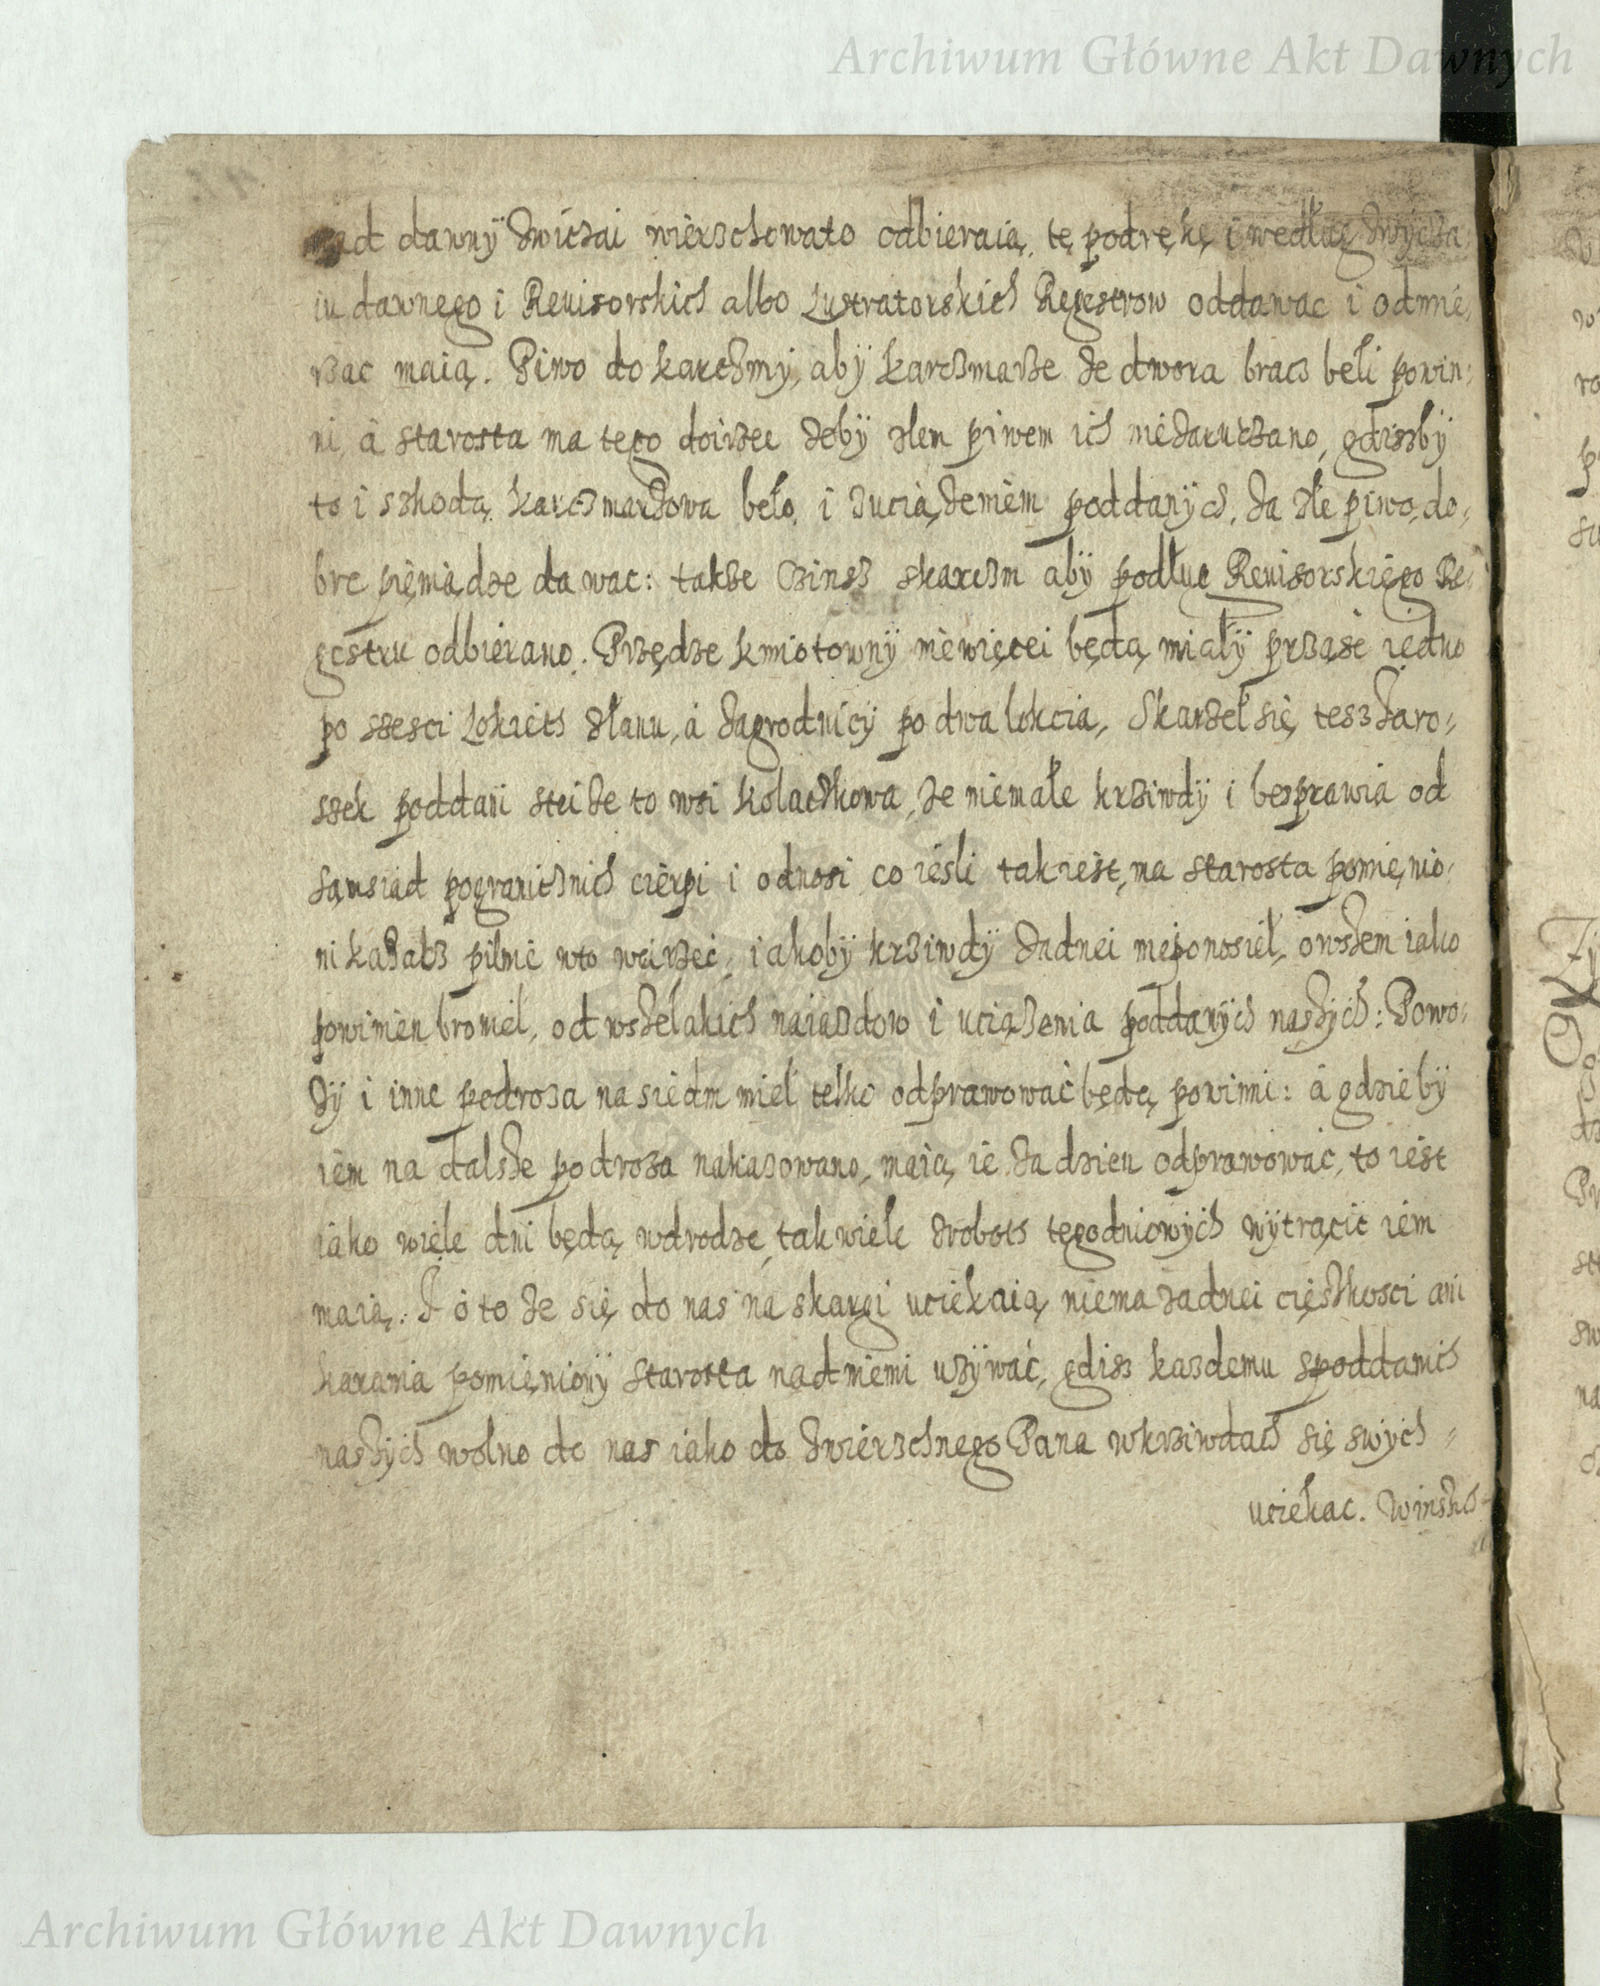 Archiwum Główne Akt Dawnych
nad dawny zwiczai wierzchowato odbieraią, tę podrękę i według zwycza
iu dawnego i Reuisorskich albo Lustratorskich Regestrow oddawac i odmie,
rzac maią. Piwo do karczmy, aby karczmarze ze dwora bracz beli powin:
ni, á starosta ma tego doirzec zeby złem piwem ich niezarużano, gdiszby
to i szkodą karczmarzowa beło, i zuciązeniem poddanych, za złe piwo, do,
bre pięniądze dawac: takze Czinsz skarczm aby podług Reuisorskiego Re,
gestru odbierano. Przędze kmiotowny niewięcei będą miały prząsć iedno
po szesci Lokiets zlanu, á zagrodnicy po dwa lokcia, Skarzeł się tesz zaro,
szek poddani stei ze to wsi kolaczkowa, ze niemałe krziwdy i besprawia od
sąusiad pogranicznich cierpi i odnosi, co iesli tak iest, ma starosta pomienio,
ni kazacz pilnie wto weirzeć, iakoby krziwdy zadnei nieponosieł, owszem iako
powinien broniel, od wszelakich naiazdow i uciązenia poddanych naszych: Powo,
zy i inne podroza na siedm miel telko odprawować będą powinni: á gdzieby
iem na dalsze podroza nakazowano, maią ie za dzien odprawować, to iest
iako wiele dni będą wdrodze, tak wiele zrobots tegodniowych wytrącić iem
maią. I o to ze się do nas na skargi uciekaią, niema zadnei cięszkosci ani
karania pomieniony starosta nad niemi uzywać, gdisz kazdemu spoddanich
naszych wolno do nas iako do zwierzchnego Pana wkrziwdach się swych
uciekac. Winszkd
Archiwum Główne Akt Dawnych